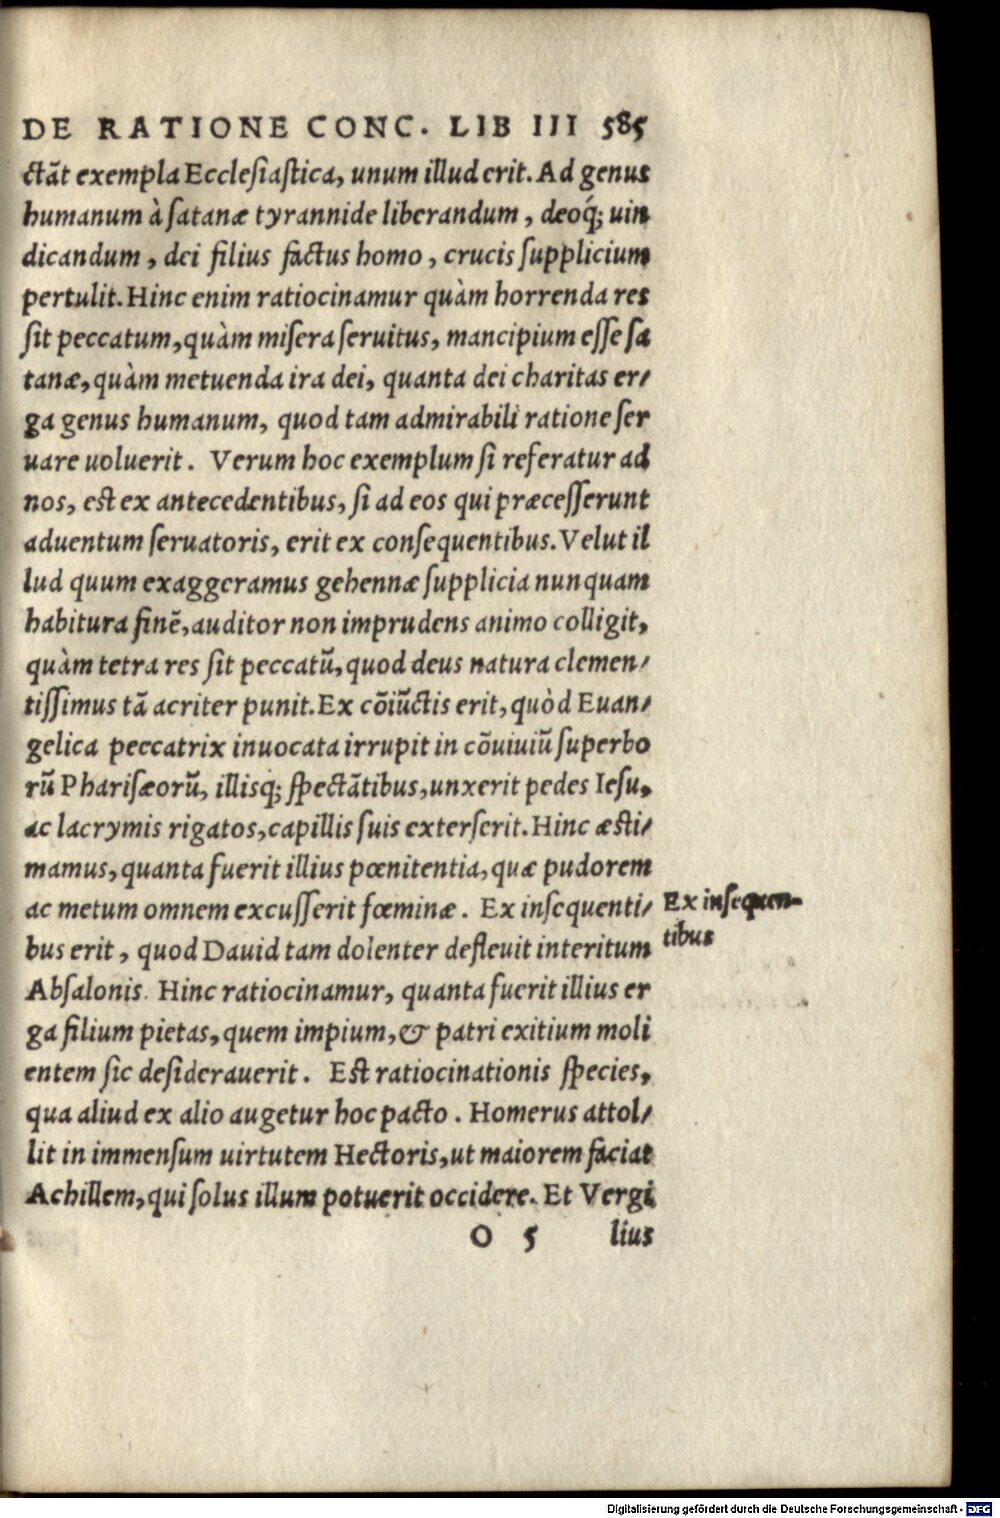 DE RATIONE CONC. LIB III 585
ctāt exempla Eccleſiaſtica, unum illud erit. Ad genus
humanum à ſatanæ tyrannide liberandum, deoq́; uin
dicandum, dei filius factus homo, crucis ſupplicium
pertulit. Hinc enim ratiocinamur quàm horrenda res
ſit peccatum, quàm miſera ſeruitus, mancipium eſſe ſa
tanæ, quàm metuenda ira dei, quanta dei charitas er/
ga genus humanum, quod tam admirabili ratione ſer
uare uoluerit. Verum hoc exemplum ſi referatur ad
nos, est ex antecedentibus, ſi ad eos qui præceſſerunt
aduentum ſeruatoris, erit ex conſequentibus. Velut il
lud quum exaggeramus gehennæ ſupplicia nunquam
habitura finẽ, auditor non imprudens animo colligit,
quàm tetra res ſit peccatū, quod deus natura clemen/
tiſſimus tā acriter punit. Ex cōiūctis erit, quòd Euan/
gelica peccatrix inuocata irrupit in cōuiuiū ſuperbo
rū Phariſæorū, illisq; ſpectātibus, unxerit pedes Ieſu,
ac lacrymis rigatos, capillis ſuis exterſerit. Hinc æſti/
mamus, quanta fuerit illius pœnitentia, quæ pudorem
ac metum omnem excuſſerit fœminæ. Ex inſequenti/
bus erit, quod Dauid tam dolenter defleuit interitum
Abſalonis. Hinc ratiocinamur, quanta fuerit illius er
ga filium pietas, quem impium, & patri exitium moli
entem ſic deſiderauerit. Eſt ratiocinationis ſpecies,
qua aliud ex alio augetur hoc pacto. Homerus attol/
lit in immenſum uirtutem Hectoris, ut maiorem faciat
Achillem, qui ſolus illum potuerit occidere. Et Vergi
O 5 lius
Ex inſequen-
tibus
Digitalisierung gefördert durch die Deutsche Forschungsgemeinschaft - DFG